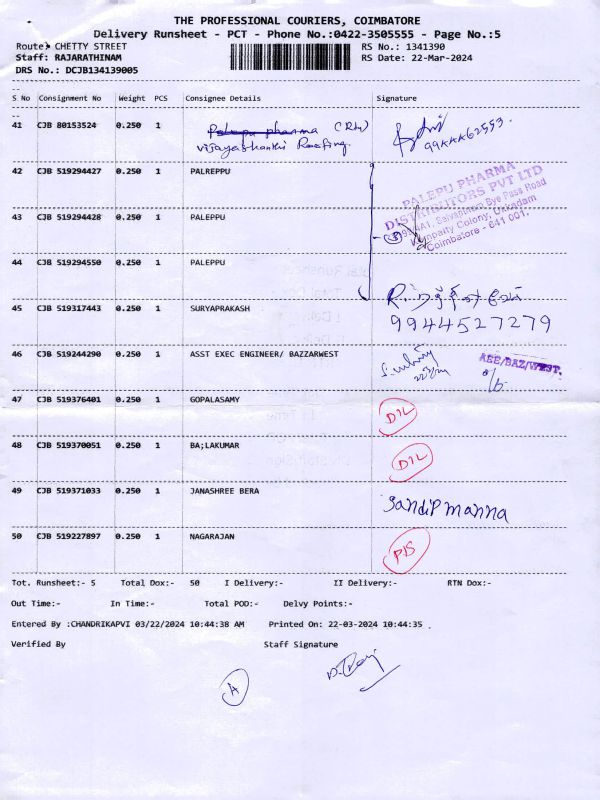 THE PROFESSIONAL COURIERS, COIMBATORE
Delivery Runsheet - PCT - Phone No.:0422-3505555 - Page No.:5
Route: CHETTY STREET
RS No.: 1341390
Staff: RAJARATHINAM
RS Date: 22-Mar-2024
DRS No.: DCJB134139005
S No Consignment No Weight PCS Consignee Details Signature
41 CJB 80153524 0.250 1 Palepu pharma
vijayashanthi Roofing
42 CJB 519294427 0.250 1 PALREPPU
PALEPU PHARMA
DISTRIBUTORS PVT LTD
43 CJB 519294428 0.250 1 PALEPPU
Coimbatore - 641 001.
44 CJB 519294550 0.250 1 PALEPPU
45 CJB 519317443 0.250 1 SURYAPRAKASH
9944527279
46 CJB 519244290 0.250 1 ASST EXEC ENGINEER/ BAZZARWEST
AEE/BAZ/WEST.
47 CJB 519376401 0.250 1 GOPALASAMY D1L
48 CJB 519370051 0.250 1 BA;LAKUMAR D1L
49 CJB 519371033 0.250 1 JANASHREE BERA Sandip manna
50 CJB 519227897 0.250 1 NAGARAJAN
Tot. Runsheet:- 5 Total Dox:- 50 I Delivery:- II Delivery:- RTN Dox:-
Out Time:- In Time:- Total POD:- Delvy Points:-
Entered By :CHANDRIKAPVI 03/22/2024 10:44:38 AM Printed On: 22-03-2024 10:44:35 .
Verified By Staff Signature
A